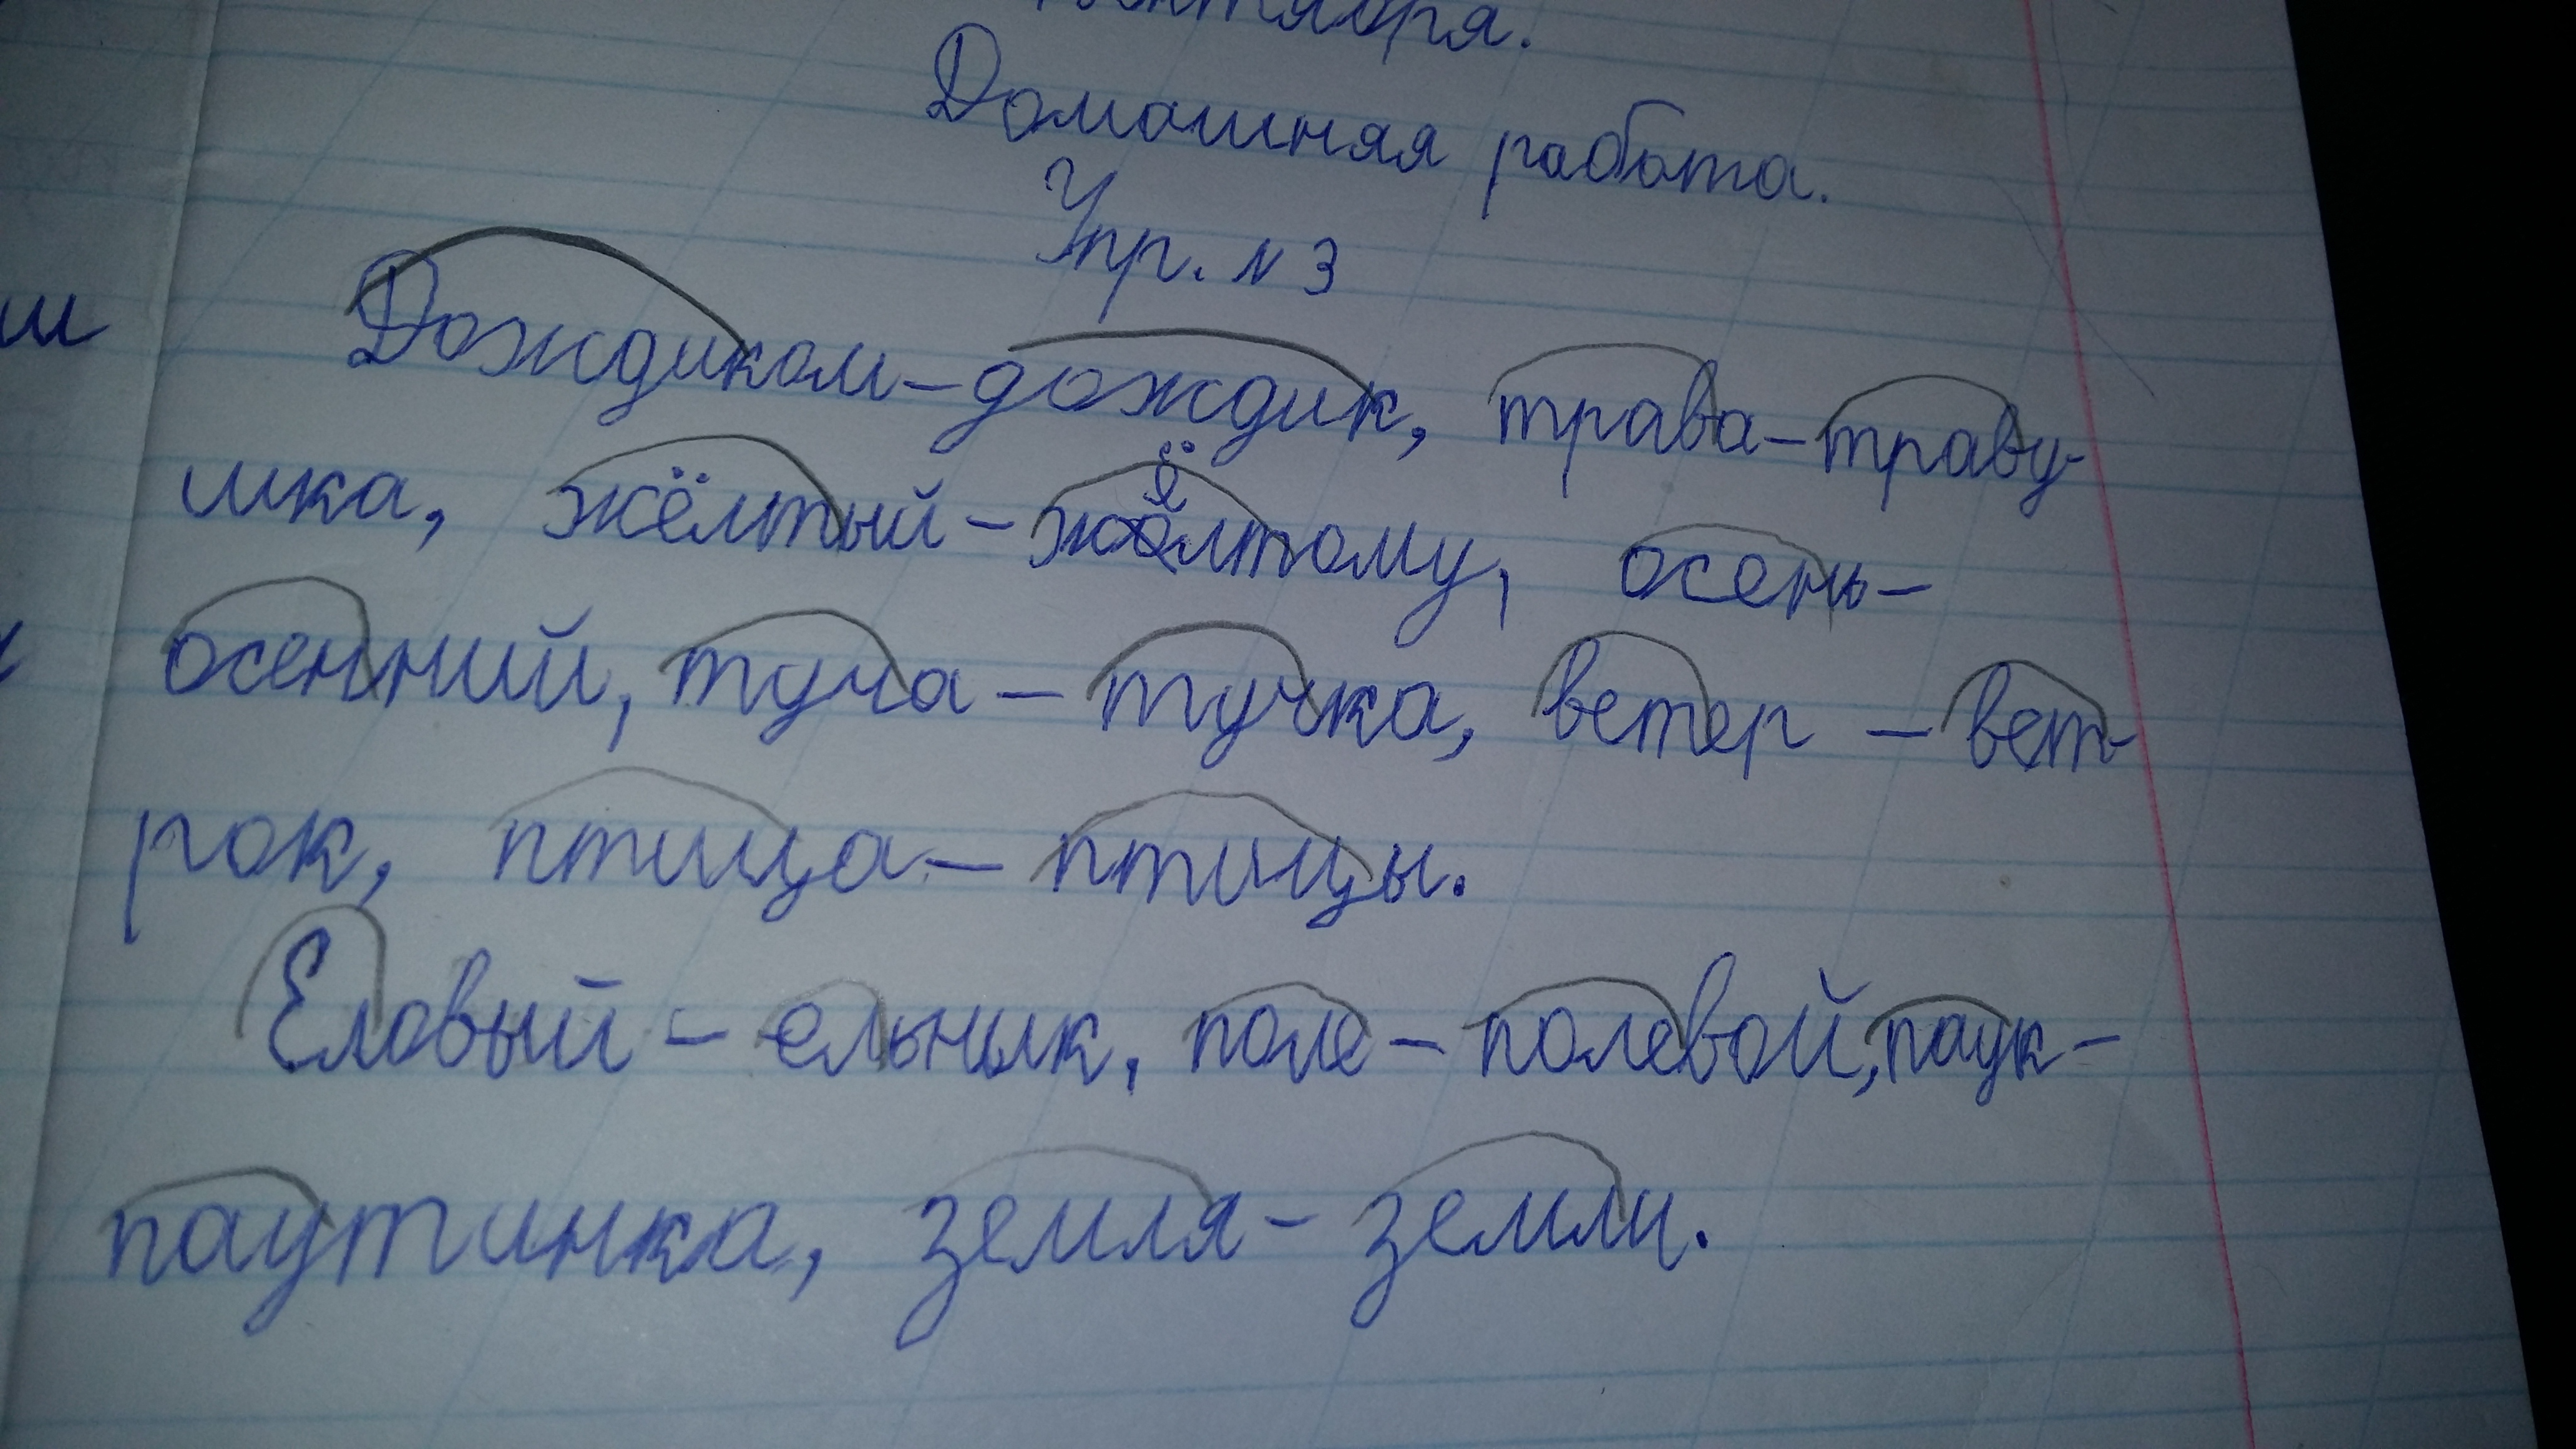 Домашняя работа.
Упр. N 3
Дождиком-дождик, трава-траву-
шка, жёлтый-жёлтому, осень-
осенний, туча-тучка, ветер-вет-
рок, птица-птицы.
Еловый-ельник, поле-полевой, паук-
паутинка, земля-земли.